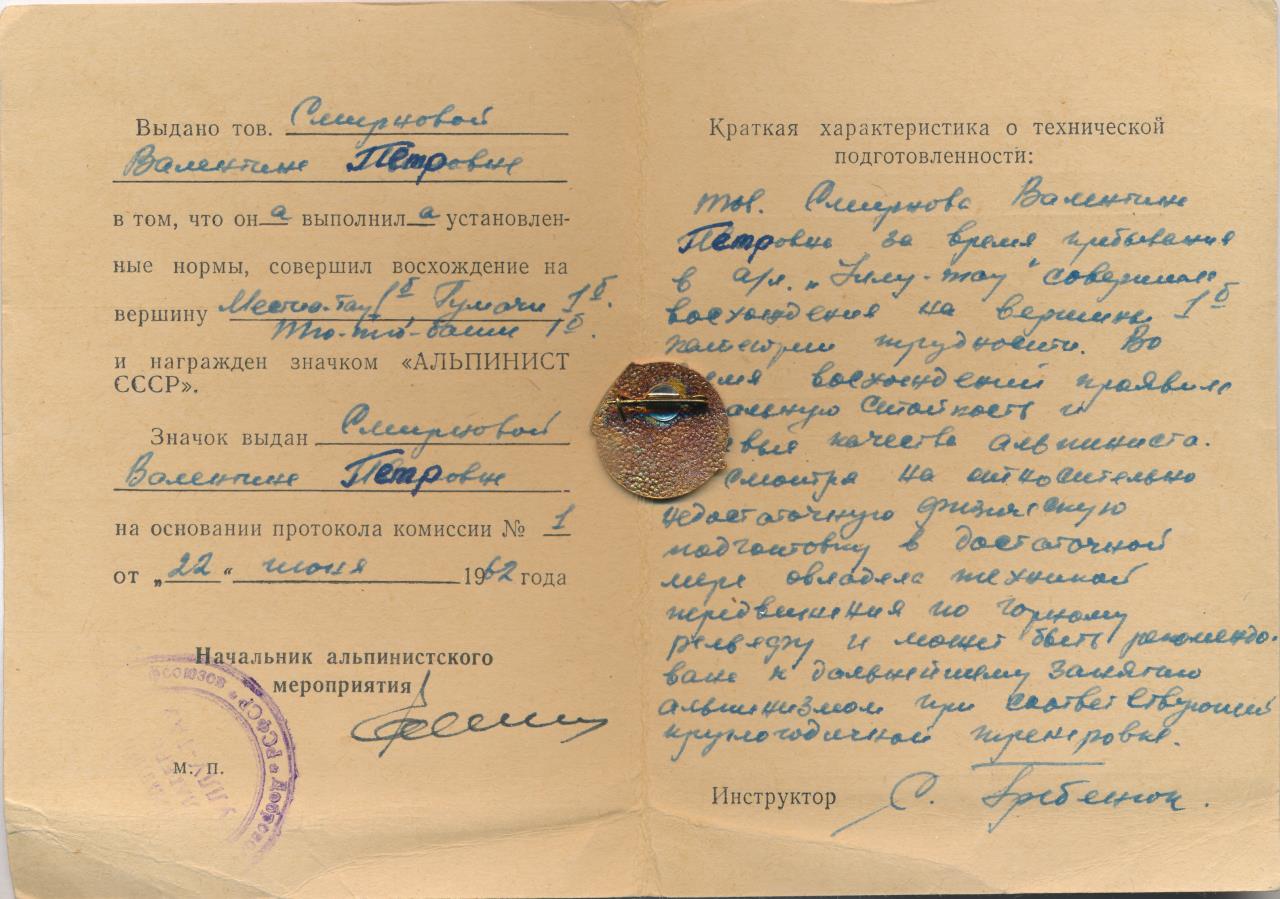 Выдано тов. Смирновой
Валентине Петровне
в том, что он а выполнил а установлен-
ные нормы, совершил восхождение на
вершину Местиа-Тау 1Б Гумачи 1Б.
Тю-тю-баши 1Б.
и награжден значком «АЛЬПИНИСТ
СССР».
Значок выдан Смирновой
Валентине Петровне
на основании протокола комиссии № 1
от „22“ июня 1962 года
Начальник альпинистского
мероприятия
м. п.
союзов • РСФСР • Добро
Краткая характеристика о технической
подготовленности:
тов. Смирнова Валентине
Петровне за время пребывания
в а/л. „Уллу-тау" совершила
восхождения на вершины 1Б
категории трудности. Во
восхождений проявила
стойкость и
качества альпиниста.
смотря на относительно
недостаточную физическую
подготовку в достаточной
мере овладела техникой
передвижения по горному
рельефу и может быть рекомендо-
вана к дальнейшему занятию
альпинизмом при соответствующей
круглогодичной тренировке.
Инструктор С. Гребенюк.